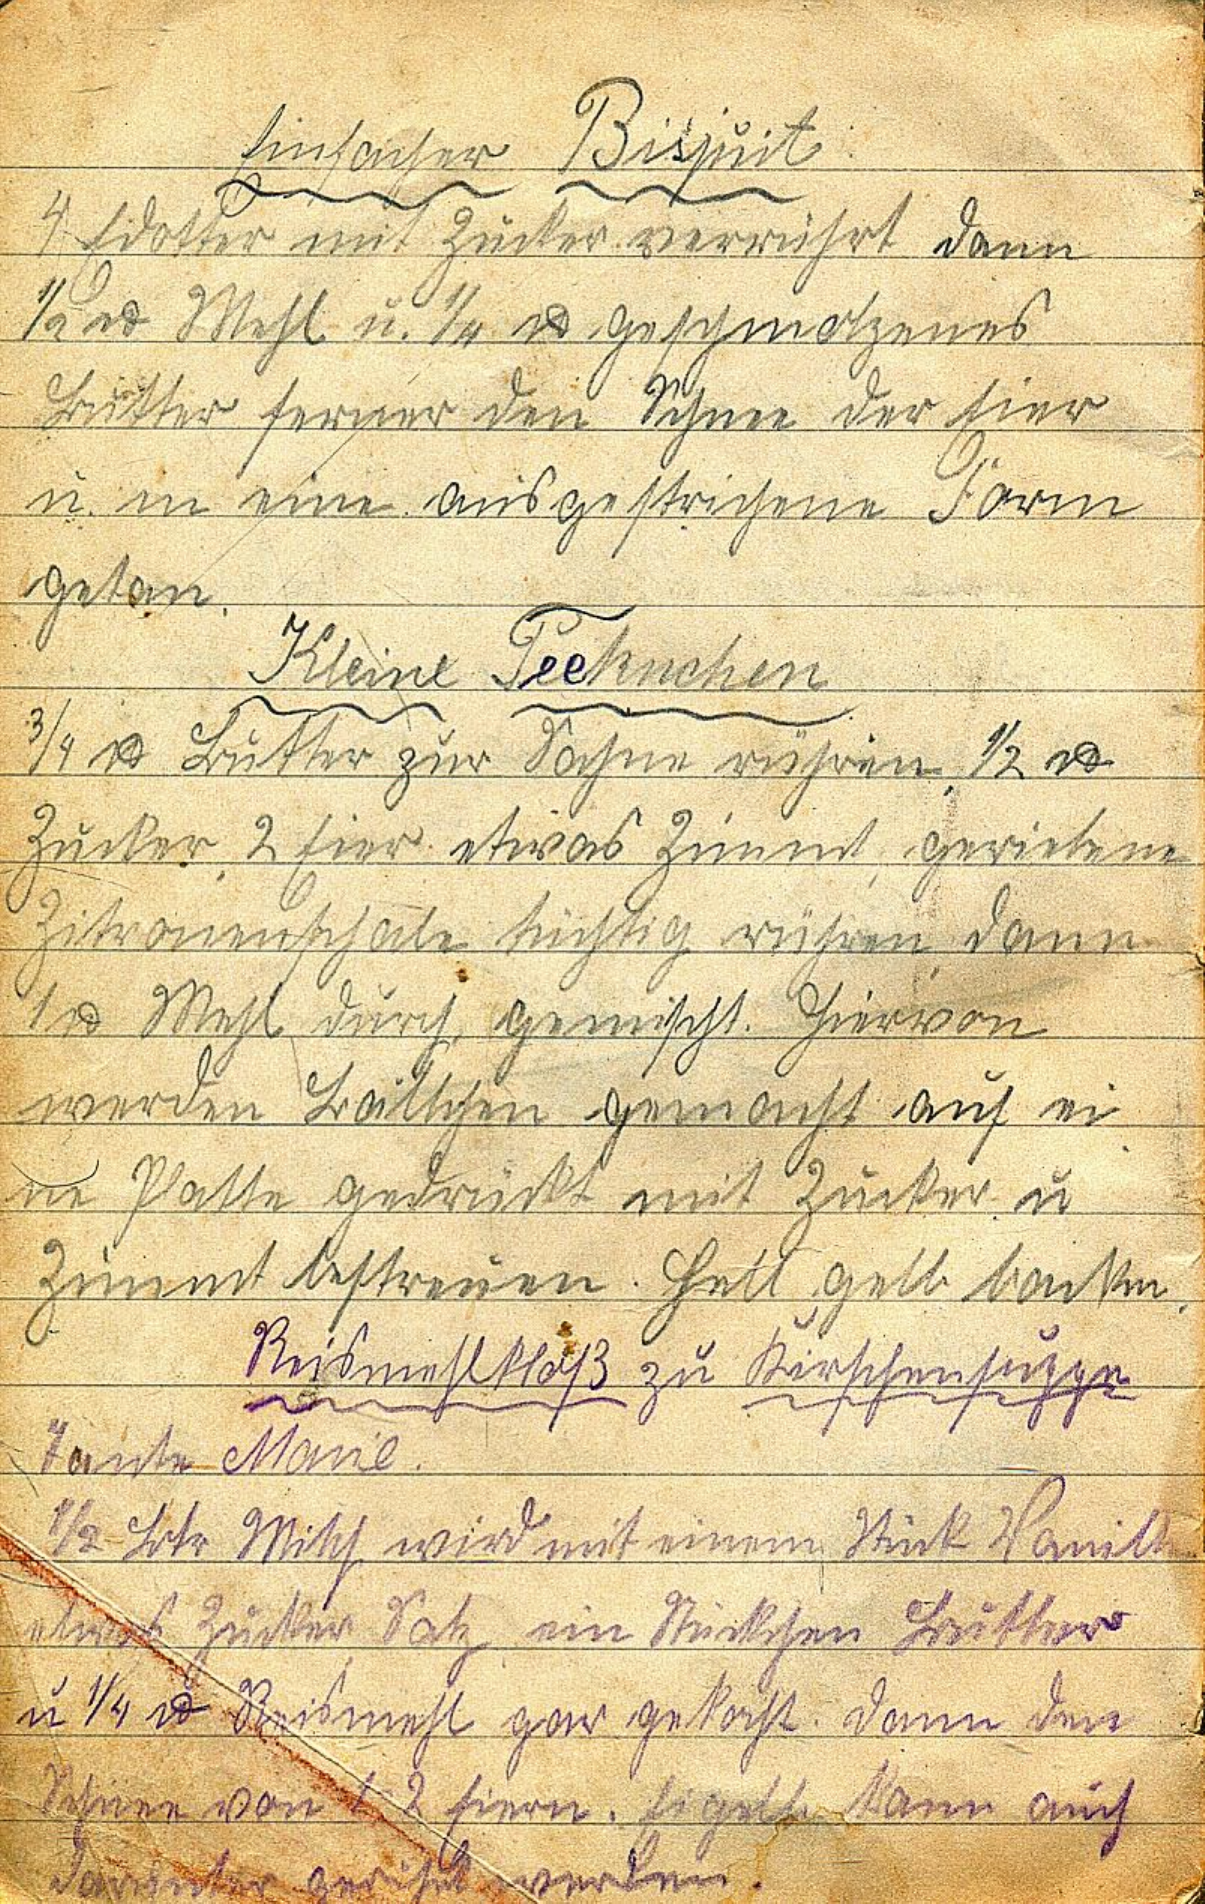 Einfacher Bisquit
4 Eidotter mit Zucker verrührt dann
1/2 ℔ Mehl u. 1/4 ℔ geschmolzenes
Butter ferner den Schnee der Eier
u. in eine ausgestrichene Form
getan.
Kleine Teekuchen
3/4 ℔ Butter zur Sahne rühren, 1/2 ℔
Zucker, 2 Eier etwas Zimmt, geriebene
Zitronenschale tüchtig rühren, dann
1 ℔ Mehl durch gemischt. Hiervon
werden Bällchen gemacht auf ei
ne Platte gedrückt mit Zucker u
Zimmt bestreuen. Hell gelb backen.
Reismehlklöß zu Kirschensuppe
Tante Marie.
1/2 Ltr Milch wird mit einem Stück Vanille
etwas Zucker, Salz, ein Stückchen Butter
u 1/4 ℔ Reismehl gar gekocht. Dann den
Schnee von 1-2 Eiern. Eigelb kann auch
darunter gerührt werden.